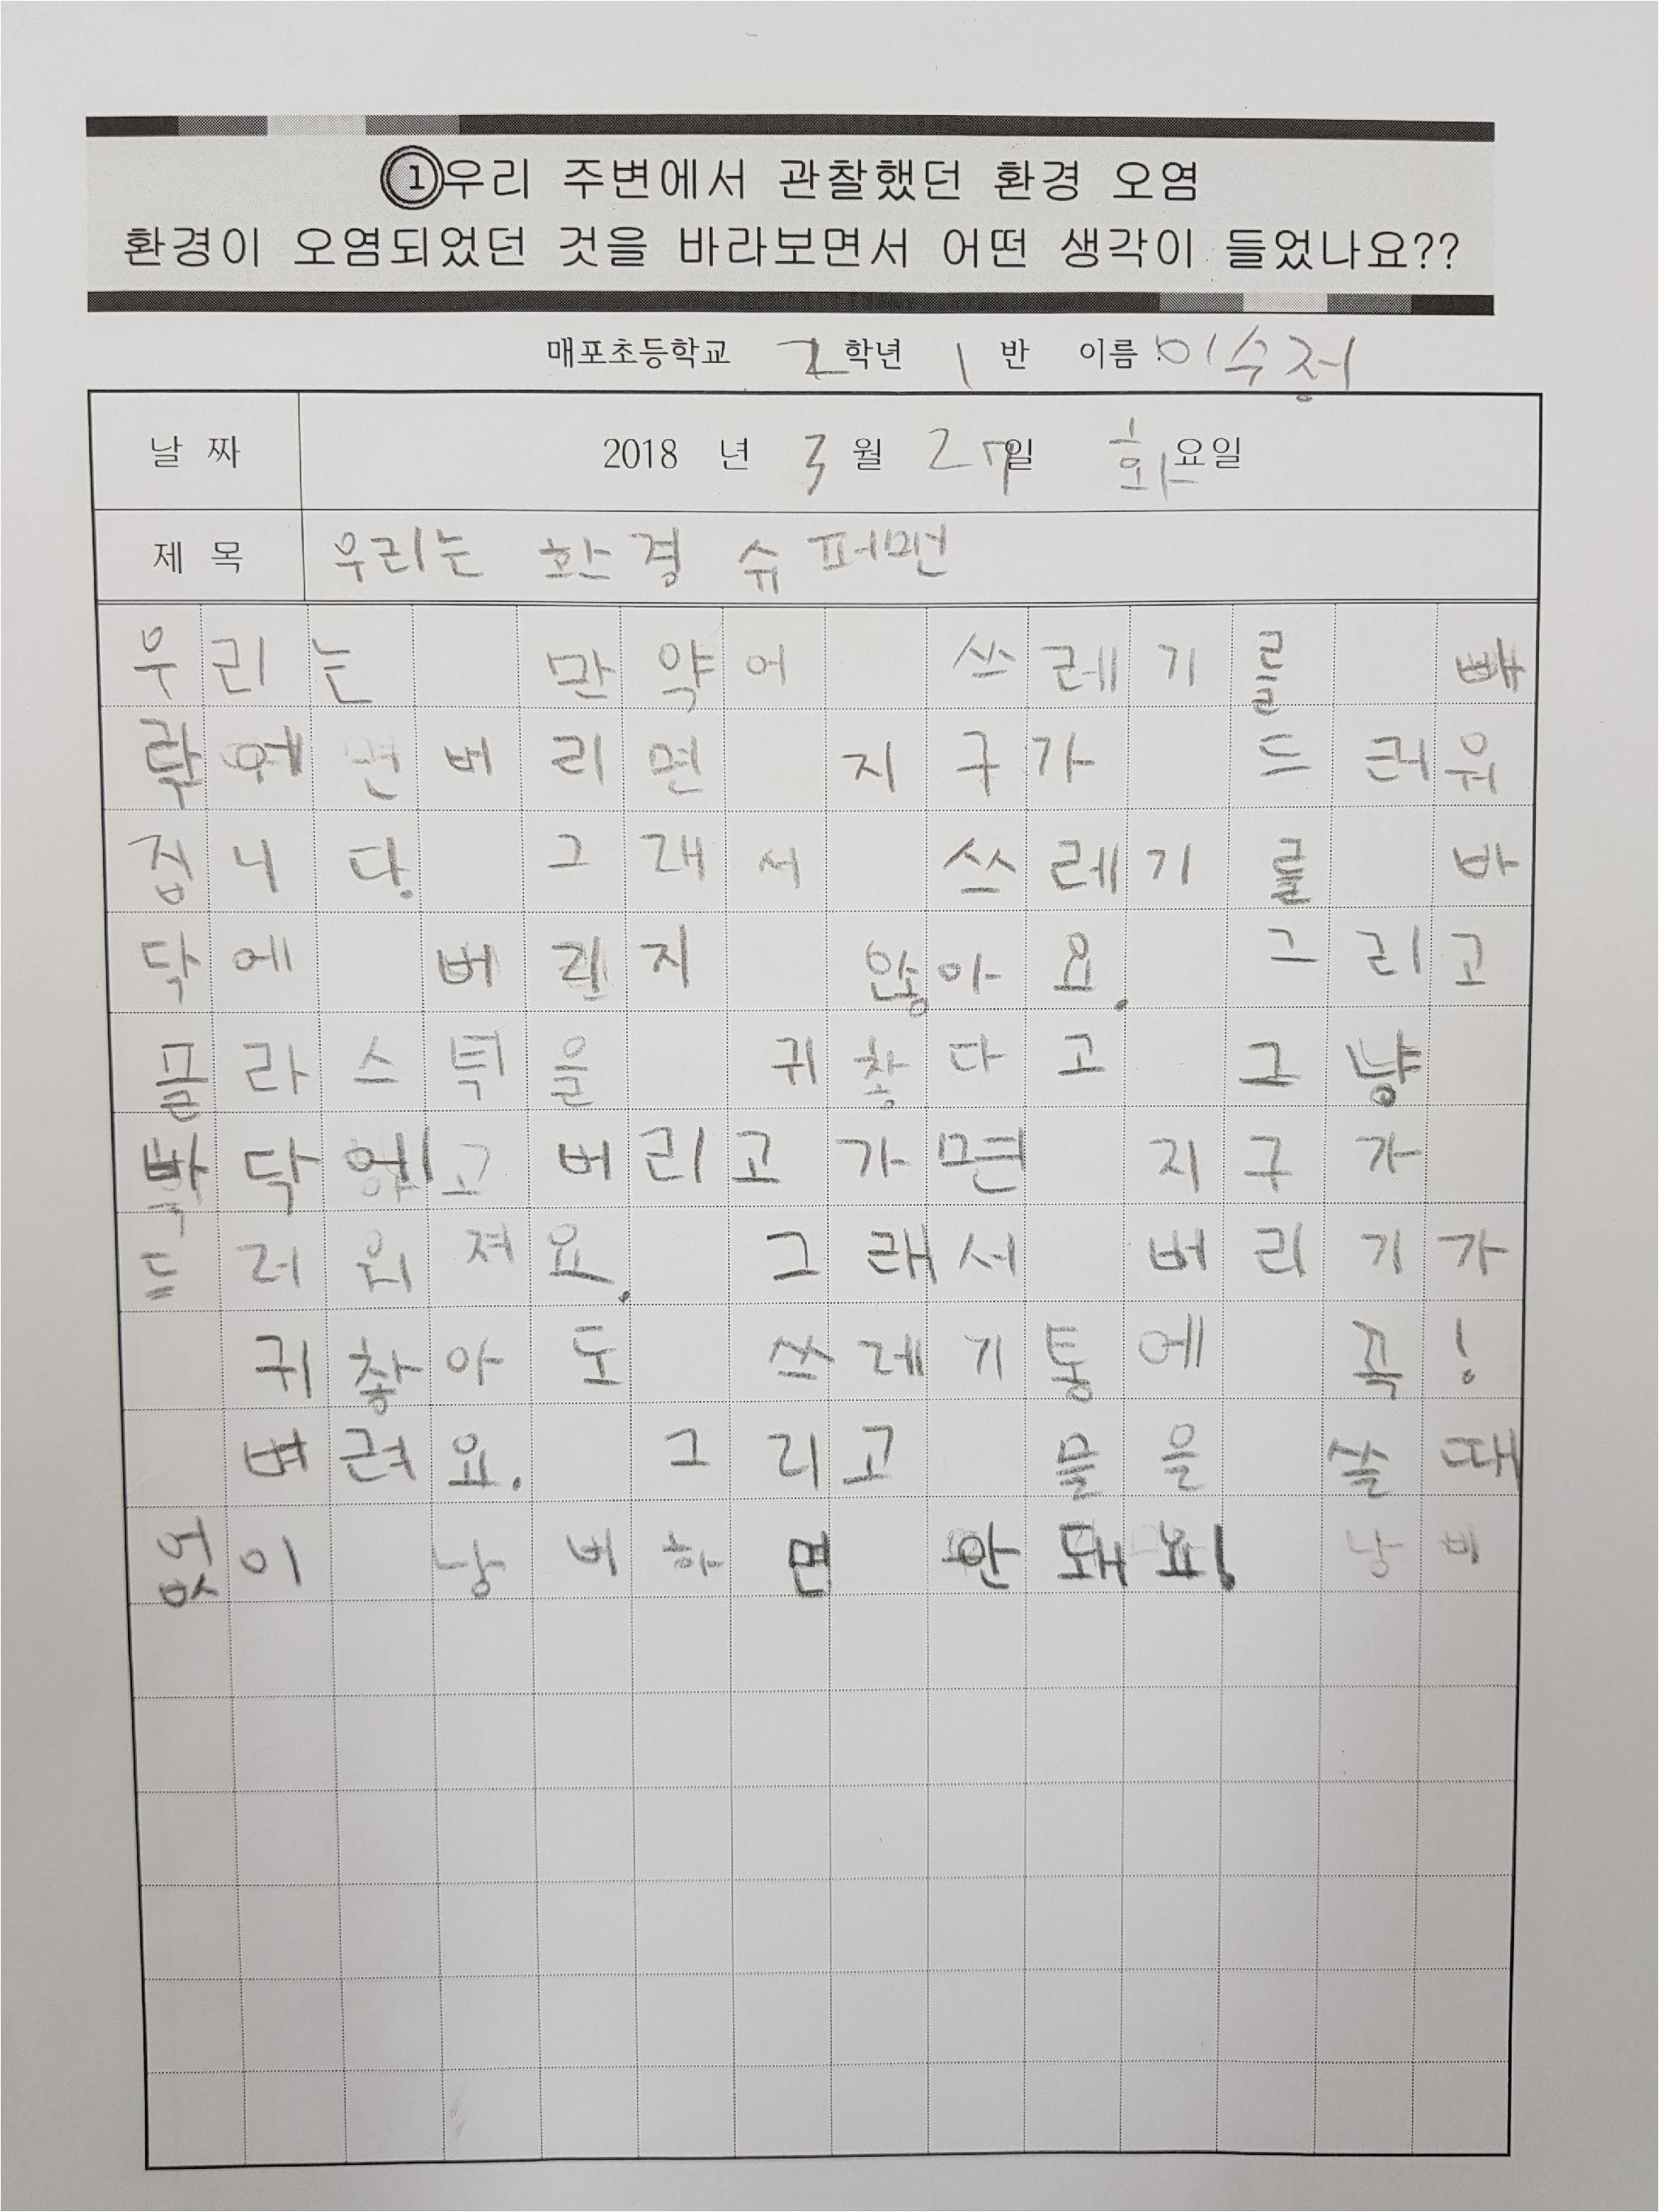 ①우리 주변에서 관찰했던 환경 오염
환경이 오염되었던 것을 바라보면서 어떤 생각이 들었나요??
매포초등학교 2학년 1반 이름:이수정
날 짜 2018 년 3월 27일 화요일
제 목 우리는 환경 슈퍼맨
우리는 만약어 쓰레기를 빠
락에 버리면 지구가 드러워
집니다. 그래서 쓰레기를 바
닥에 버리지 않아요. 그리고
플라스틱을 귀찮다고 그냥
바닥에 버리고가면 지구가
드러워져요. 그래서 버리기가
귀찮아도 쓰레기통에 꼭!
벼려요. 그리고 물을 쓸때
없이 낭비하면 안돼요!